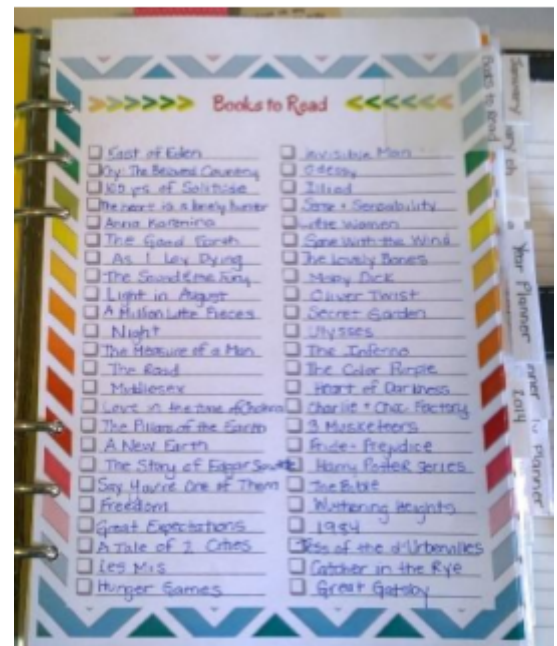 Books to Read
East of Eden
Cry: The Beloved Country
100 yrs of Solitude
The heart is a lonely hunter
Anna Karenina
The Good Earth
As I Lay Dying
The Sound & the Fury
Light in August
A Million Little Pieces
Night
The Measure of a Man
The Road
Middlesex
Love in the time of
The Pillars of the Earth
A New Earth
The Story of Edgar
Say You're One of Them
Freedom
Great Expectations
A Tale of 2 Cities
Les Mis
Hunger Games
Invisible Man
Odessy
Illiad
Sense + Sensability
Little Women
Gone With the Wind
The Lovely Bones
Moby Dick
Oliver Twist
Secret Garden
Ulysses
The Inferno
The Color Purple
Heart of Darkness
Charlie + Choc. Factory
3 Musketeers
Pride + Prejudice
Harry Potter Series
The Bible
Wuthering Heights
1984
Tess of the d'Urbervilles
Catcher in the Rye
Great Gatsby
Books to Read
January
Year Planner
2014
Planner